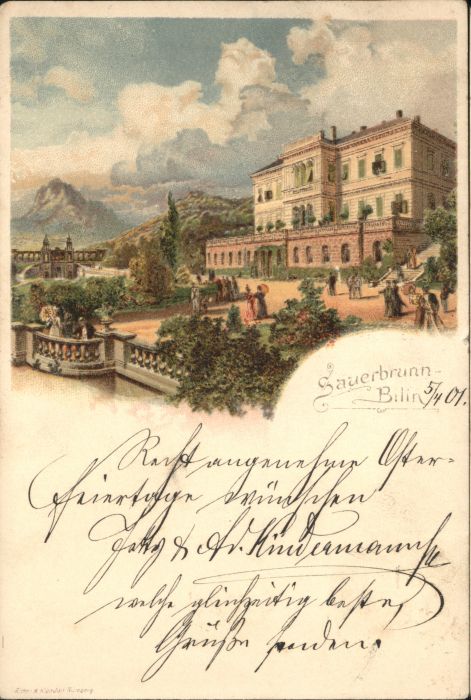 Sauerbrunn-
Bilin 5/4 01.
Recht angenehme Oster-
feiertage wünschen
& Ad. Kindermann
welche gleichzeitig beste
Grüße senden.